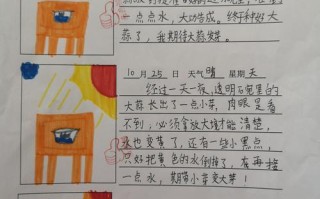 一点点水，大功告成。终于种好大
蒜了，我期待大蒜发芽。
10月25日 天气晴 星期天
经过一天一夜，透明玻璃里的
大蒜长出了一点小芽，肉眼是看
不到，必须拿放大镜才能清楚，
水也变黄了，还有一些小黑点，
只好把黄色的水倒掉了，在再接
一点水，期待小芽变大芽！